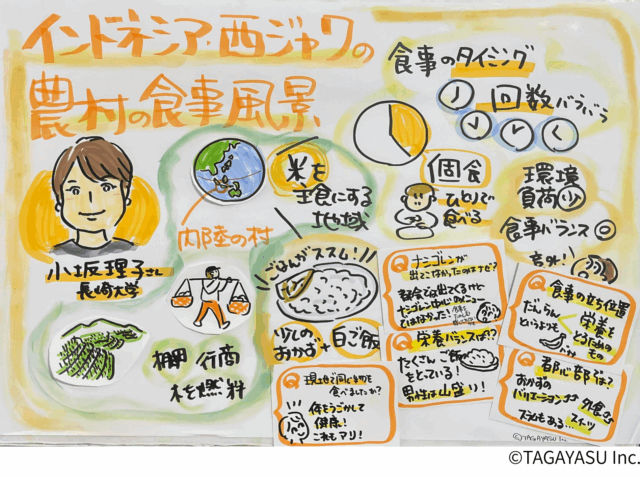 インドネシア・西ジャワの
農村の食事風景
小坂理子さん
長崎大学
内陸の村
米を
主食にする
地域
ごはんがススム!
少しの
おかず+白ご飯
棚
行商
木を燃料
食事のタイミング
回数バラバラ
個食
ひとりで
食べる
環境
負荷少
食事バランス◎
意外!
Q ナシゴレンが
出てこなかったのはナゼ?
都会では出てくるけど
ナシゴレン中心のメニュー
ではなかった!
Q 栄養バランスは??
たくさん ご飯
をとている!
男性は山盛り!
Q 現地で同じ物を
食べましたか?
体をうごかして
健康!
これもアリ!
Q 食事の立ち位置
だんらん
どういうより
栄養を
とるための
もの
Q 都心部では?
おかずの
バリエーション
外食
スイーツ
もある…
©TAGAYASU Inc.
©TAGAYASU Inc.